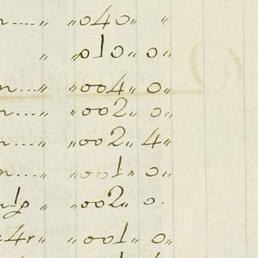 n....„ „040„ „
„ „010„ 0„
n....„ „004„ 0„
n....„ „002„ 0„
n....„ „002„ 4„
n....„ „001„ 0„
„ „002„ 0.
4r„ „001„ 0„